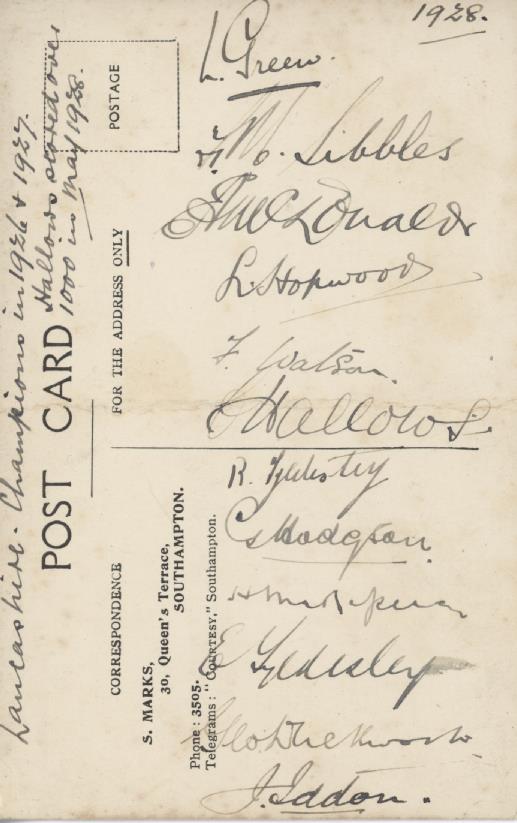 1928.
L. Green.
F. M. Sibbles
E A McDonald
L. Hopwood
F. Watson.
C Hallows.
R. Tyldesley
G Hodgson.
H Makepeace
E Tyldesley
G Duckworth.
J. Iddon.
Lancashire - Champions in 1926 & 1927.
Hallows scored over
1000 in May 1928.
POST CARD
POSTAGE
FOR THE ADDRESS ONLY
CORRESPONDENCE
S. MARKS,
30, Queen's Terrace,
SOUTHAMPTON.
Phone: 3505.
Telegrams: "COURTESY," Southampton.